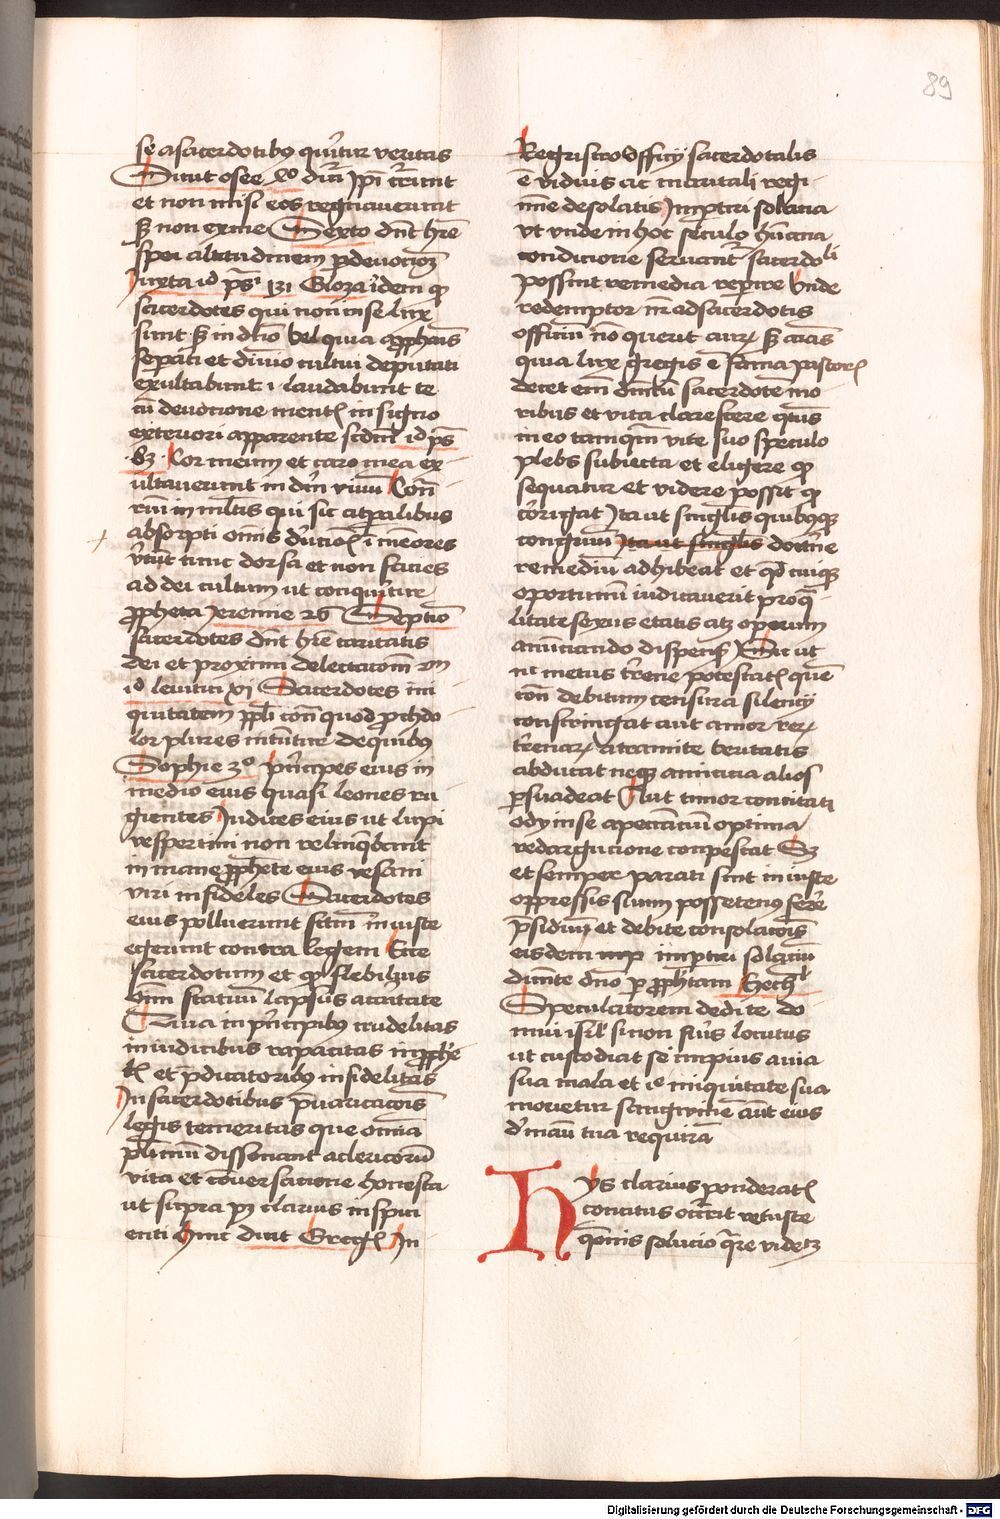 89
se a sacerdotibus queritur veritas
Sicut osee 8o dicit Ipsi
et non misi eos regnaverunt
sed non ex me Sexto dnt hre
spei altitudinem per devocionem
Iuxta id ps 131 Gloza idem qd
sacerdotes qui non in se lux
sunt sed in dno Vel quia a prophanis
separati et divino cultui deputati
exultabunt .i. laudabunt te
cu devocione mentis in signo
exteriori apparente scdm id ps
83 Cor meum et caro mea ex
ultaverunt in dm vivum Contra
riu in multis qui sic carnalibus
absorpti
vertunt tunc dorsa et non facies
ad dei cultum ut conqueritur
propheta Jeremie 26 Septio
sacerdotes dnt hre caritatis
dei et proximi delectacionem
id levitici xi Sacerdotes ini
quitatem ppli quod pchdo
lor plures de quibus
Sophie 3o principes eius in
medio eius quasi leones ru
gientes Iudices eius ut lupi
vespertini non relinquebant
in mane prophete eius vesani
viri infideles Sacerdotes
eius polluerunt sctm iniuste
egerunt contra legem Ecce
sacerdotum et qd flebilius
omnium statuum lapsus a caritate
Quia in principibus crudelitas
in iudicibus rapacitas in prophe
tis et predicatoribus infidelitas
In sacerdotibus prevaricacionis
legis temeritas que omnia
plurimum dissonant a clericorum
vita et conversacione honesta
ut supra pz clarius inspici
enti hinc dicit Gregs In
Registro Officij sacerdotalis
e viduis ac maritali regi
mine desolatis impertiri solacia
ut unde in hoc seculo humana
condicione servantur sacerdoli
possint remedia reperire Unde
redemptor nr ad sacerdotis
officium non querit aurum sed animas
quia lux gregis e flamma pastoris
decet enim dominicum sacerdotem mo
ribus et vita clarescere quatenus
in eo tamquam vite suo speculo
plebs subiecta et eligere qd
sequatur et videre possit qd
corrigat Ita ut singulis quibusque
congruum Ita ut singulis doctrine
remedium adhibeat et quod cuique
oportunum iudicaverit pro qua
litate sexus etatis atque operum
annunciando dispenset Sic ut
nec metus terrene potestatis quem
contra debitum censura silencij
constringat aut amor rerum
terrenarum a tramite veritatis
abducat neque amicicia alios
persuadeat Aut timor concitati
odij in se a peccancium optima
redargucione compescat Sz
et semper parati sint iniuste
oppressis suum possetenus ferre
presidium et debite consolacionis
eisdem impertiri solacium
dicente domino per prophetam Ezech
Speculatorem dedi te do
mui isrl si non fueris locutus
ut custodiat se impius a via
sua mala et ipse iniquitate sua
morietur sanguinem autem eius
de manu tua requiram
Hys clarius ponderatis
concitus occurrit vetuste
questionis solucio quare videtz
Digitalisierung gefördert durch die Deutsche Forschungsgemeinschaft - DFG